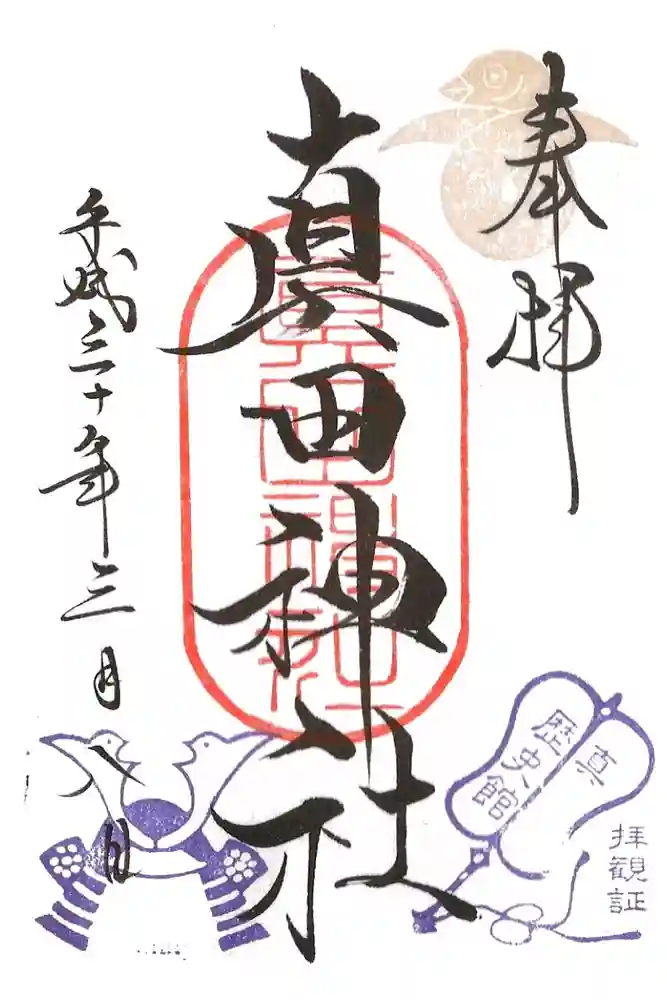 奉拝
真田神社
平成三十年三月八日
真
歴史館
拝観証